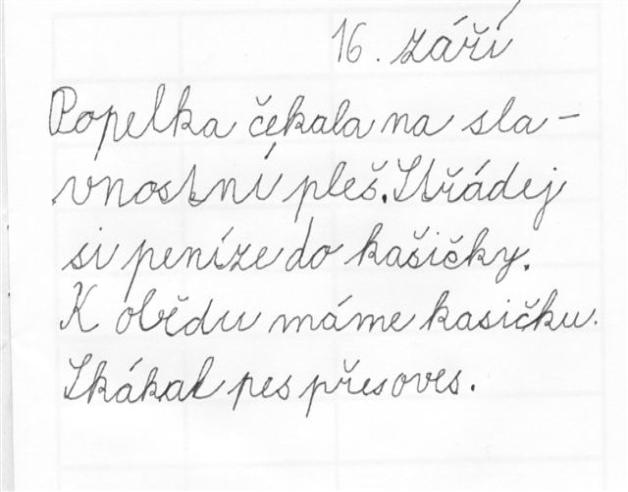 16. září
Popelka čekala na sla-
vnostní pleš. Střádej
si peníze do kašičky.
K obědu máme kasičku.
Skákal pes přes oves.